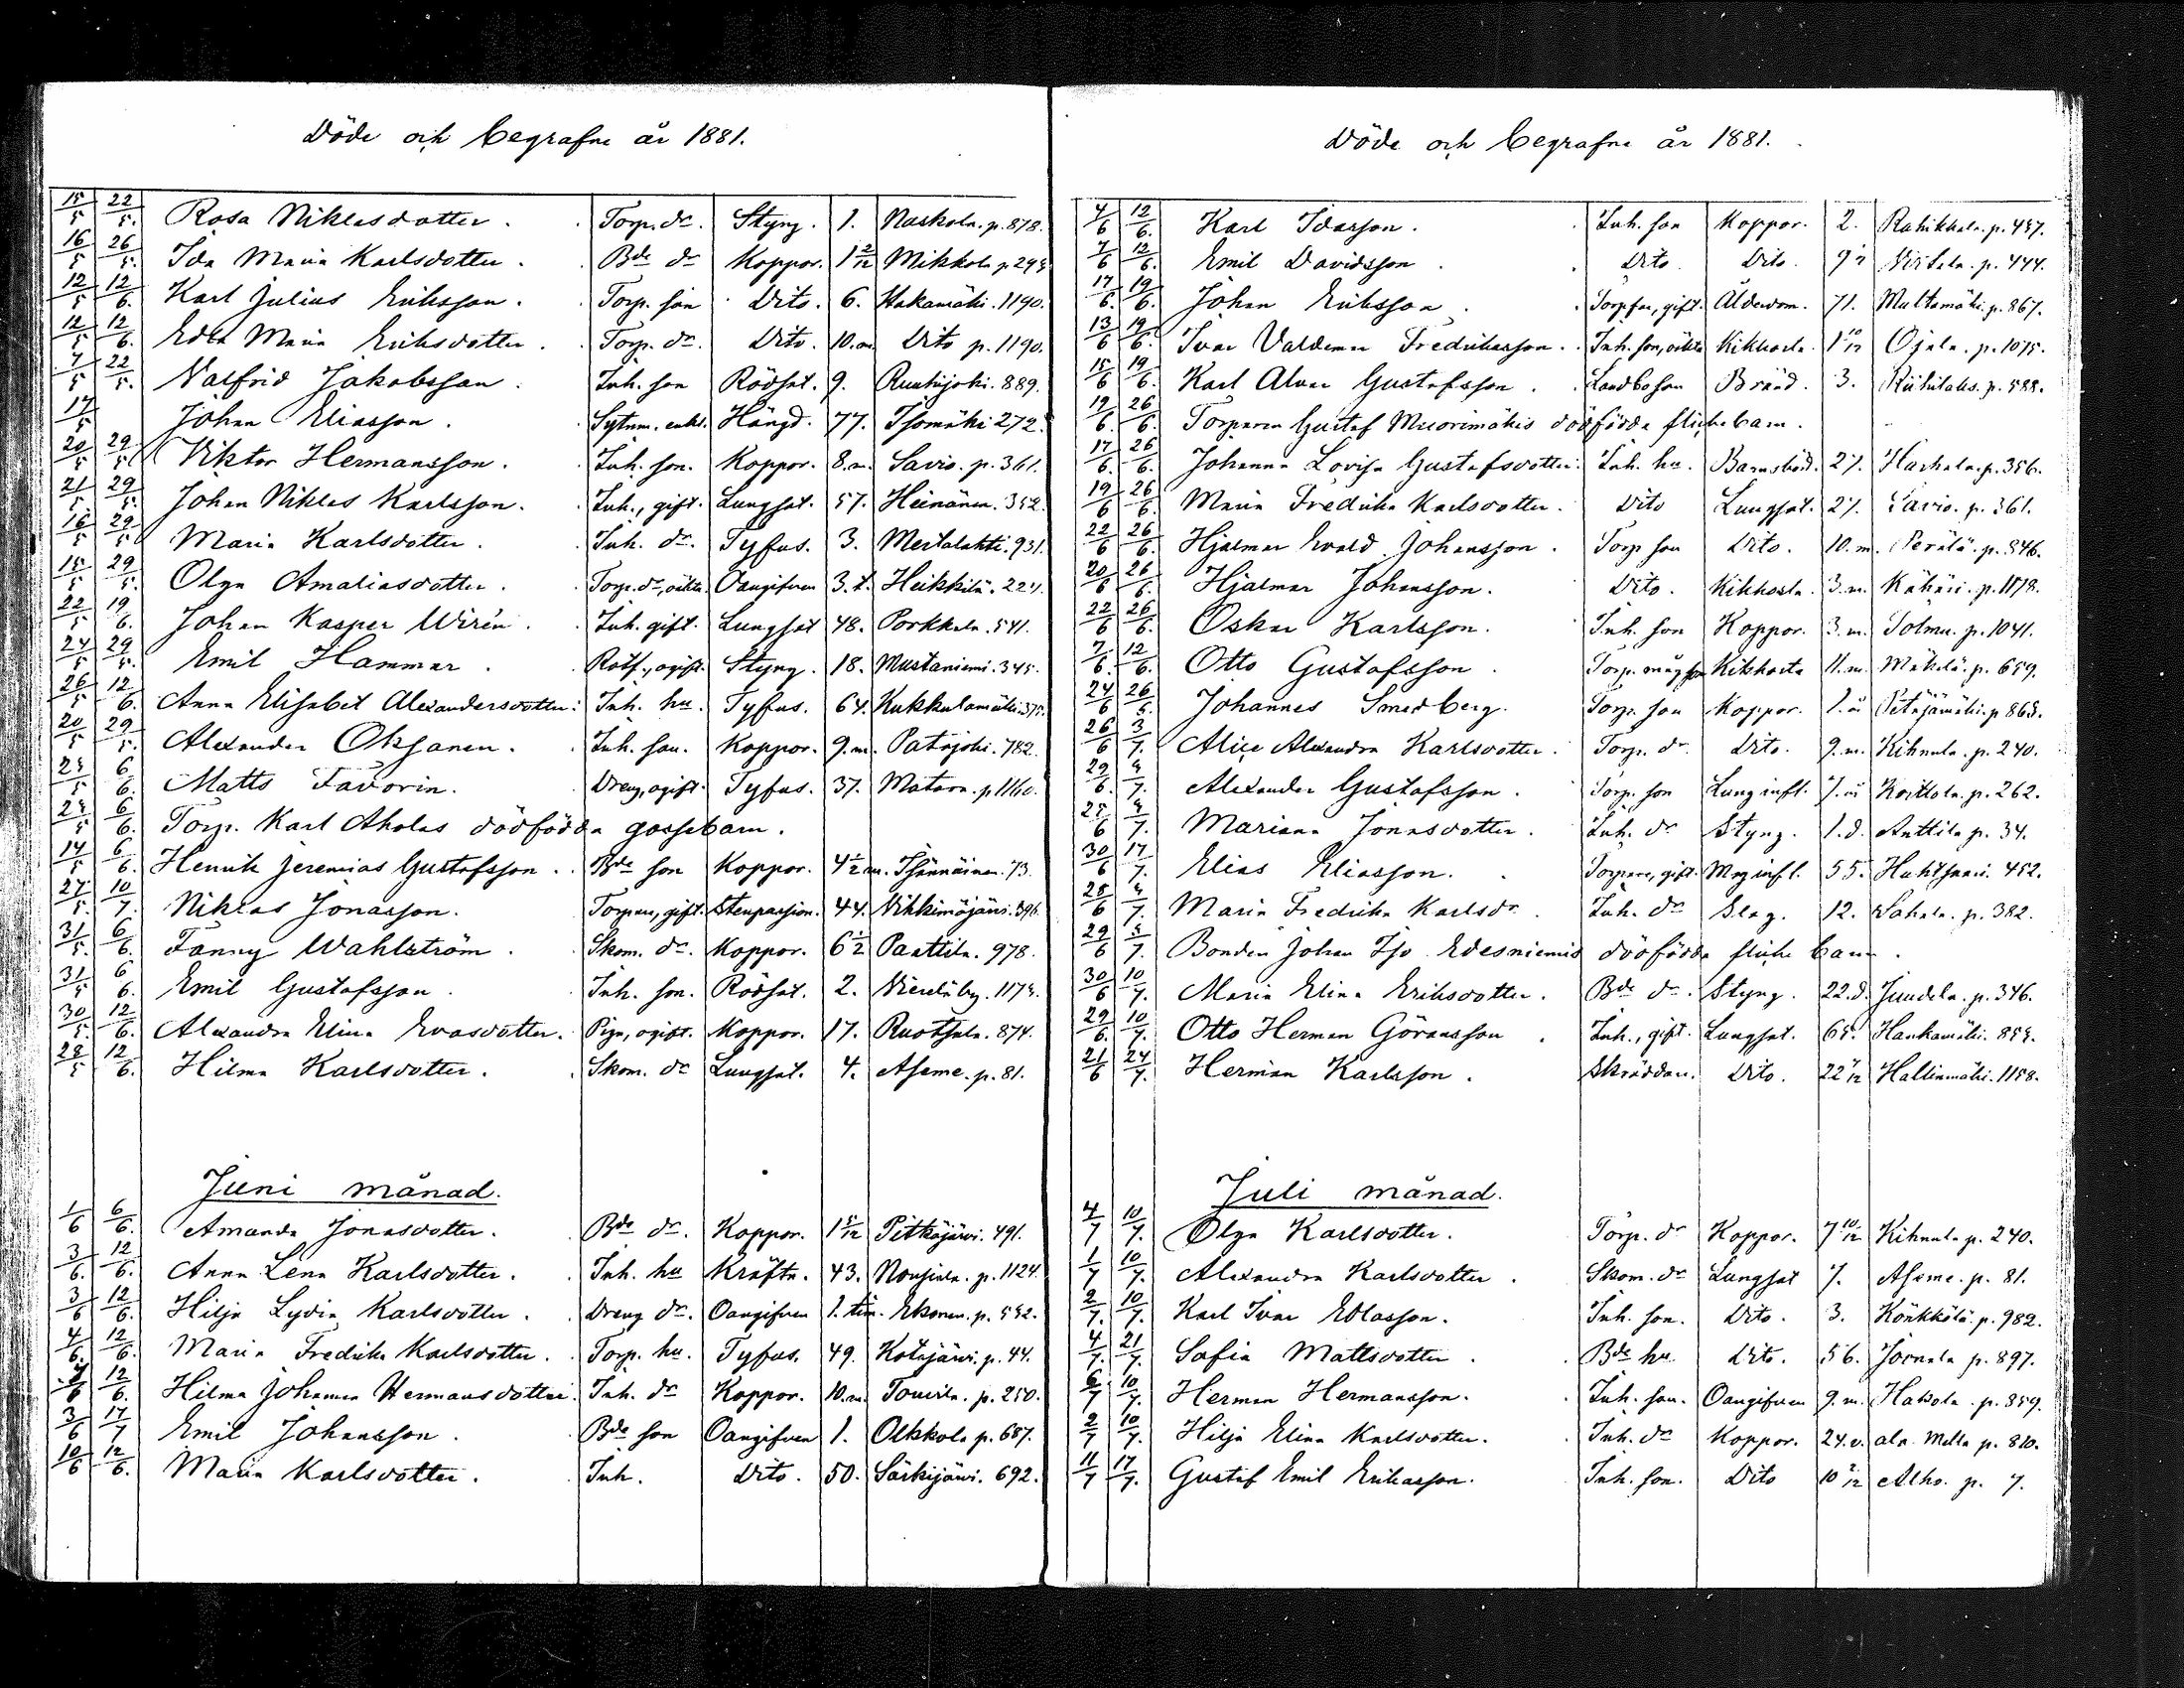 Döde och begrafne år 1881.
15/5 22/5. Rosa Niklasdotter. Torp. dr. Styng. 1. Naskola. p. 878.
16/5 26/5. Ida Maria Karlsdotter. Bde dr Koppor. 1 2/12 Mikkola p.
12/5 12/6. Karl Julius Eriksson. Torp. son Dito. 6. Hakamäki. 1190.
12/5 12/6. Edla Maria Eriksdotter. Torp. dr. Dito. 10. m. Dito p. 1190.
7/5 22/5. Valfrid Jakobsson. Inh. son Rödsot. 9. Ruuhijoki. 889.
17/5 Johan Eliasson. Sytnm. enkl. Hängd. 77. Isomäki 272.
20/5 29/5 Viktor Hermansson. Inh. son. Koppor. 8. m. Savio. p. 361.
21/5 29/5. Johan Niklas Karlsson. Inh., gift. Lungsot. 57. Heinänen. 352.
16/5 29/5 Maria Karlsdotter. Inh. dr. Tyfus. 3. Mertalahti. 931.
15/5 29/5. Olga Amaliasdotter. Torp. dr, oäkta Oangifven 3. t. Heikkilä.
22/5 19/6. Johan Kasper Wirén. Inh. gift. Lungsot 48. Porkkala. 541.
24/5 29/5. Emil Hammar. Rotf., ogift. Styng. 18. Mustaniemi. 345.
26/5 12/6. Anna Elisabet Alexandersdotter. Inh. hu. Tyfus. 64. Kukkulamäki
20/5 29/5. Alexander Oksanen. Inh. son. Koppor. 9. m. Patajoki. 782.
25/5 6/6. Matts Favorin. Dreng, ogift. Tyfus. 37. Matara. p. 1160.
25/5 6/6. Torp. Karl Aholas dödfödda gossebarn.
14/5 6/6. Henrik Jeremias Gustafsson. Bde son Koppor. 4 1/2 m. 73.
27/5. 10/7. Niklas Jonasson. Torpare, gift. Stenpassion. 44. Vihkimäjärvi. 396.
31/5. 6/6. Fanny Wahlström. Skom. dr. Koppor. 6 1/2 Paattila. 978.
31/5 6/6. Emil Gustafsson. Inh. son. Rödsot. 2. Vierelä by.
30/5. 12/6. Alexandra Elina Evasdotter. Piga, ogift. Koppor. 17. Ruotsula. 874.
28/5 12/6. Hilma Karlsdotter. Skom. dr Lungsot. 4. Aseme. p. 81.
Juni månad.
1/6 6/6. Amanda Jonasdotter. Bde dr. Koppor. 1 5/12 Pitkäjärvi. 491.
3/6. 12/6. Anna Lena Karlsdotter. Inh. hu Kräfta. 43. Nousiala. p. 1124.
3/6 12/6. Hilja Lydia Karlsdotter. Dreng dr. Oangifven 1. tim. Ekonen. p. 532.
4/6. 12/6. Maria Fredrika Karlsdotter. Torp. hu. Tyfus. 49. Kotajärvi. p. 44.
7/6 12/6. Hilma Johanna Hermansdotter. Inh. dr Koppor. 10. m Touvila. p. 250.
3/6 17/7 Emil Johansson. Bde son Oangifven 1. Olkkola p. 687.
10/6 12/6. Maria Karlsdotter. Inh. Dito. 50. Särkijärvi. 692.
Döde och begrafne år 1881.
4/6 12/6. Karl Idasson. Inh. son Koppor. 2. Rahikkala. p. 457.
7/6 12/6. Emil Davidsson. Dito Dito. 9 Virtala. p. 444.
17/6. 19/6. Johan Eriksson. Torpfar, gift. Ålderdom. 71. Multamäki. p. 867.
13/6 19/6. Ivar Valdemar Fredriksson. Inh. son, oäkta Kikhosta. 1 10/12 Ojala. p. 1075.
15/6 19/6. Karl Alvar Gustafsson. Landbo son Bränd. 3. Riihilaks. p. 588.
19/6. 26/6. Torparen Gustaf Muorimäkis dödfödda flickebarn.
17/6. 26/6. Johanna Lovisa Gustafsdotter. Inh. hu. Barnsbörd. 27. Harhala. p. 356.
19/6 26/6. Maria Fredrika Karlsdotter. Dito Lungsot. 27. Savio. p. 361.
22/6 26/6. Hjalmar Evald Johansson. Torp son Dito. 10. m. Perälä. p. 546.
20/6 26/6. Hjalmar Johansson. Dito. Kikhosta. 3. m. Kähäri. p. 1178.
22/6 26/6. Oskar Karlsson. Inh. son Koppor. 3. m. Tolmu. p. 1041.
7/6. 12/6. Otto Gustafsson. Torp. måg son Kikhosta 11. m. Mäkelä. p. 659.
24/6 26/6. Johannes Smedberg. Torp. son Koppor. 1. m Petäjämäki. p. 863.
26/6 3/7. Alice Alexandra Karlsdotter. Torp. dr Dito. 9. m. Kihnula. p. 240.
29/6. 7. Alexander Gustafsson. Torp. son Lunginfl. 7. m Kerttola. p. 262.
25/6 7. Mariana Jonasdotter. Inh. dr Styng. 1. d. Anttila p. 34.
30/6 17/7. Elias Eliasson. Torpare, gift. Maginfl. 55. Huhtsaari. 452.
25/6 7. Maria Fredrika Karlsdr. Inh. dr Slag. 12. Sahala. p. 382.
29/6 3/7. Bonden Johan Iso Edesniemis dödfödda flicke barn.
30/6 10/7. Maria Elina Eriksdotter. Bde dr. Styng. 22. d. Jundila. p. 346.
29/6. 10/7. Otto Herman Göransson. Inh., gift. Lungsot. 65. Hankamäki.
21/6 24/7. Herman Karlsson. Skräddare. Dito. 22 Hallinmäki. 1158.
Juli månad.
4/7 10/7. Olga Karlsdotter. Torp. dr Koppor. 7 10/12 Kihnula p. 240.
1/7 10/7. Alexandra Karlsdotter Skom. dr Lungsot 7. Aseme. p. 81.
2/7. 10/7. Karl Ivar Edlasson. Inh. son. Dito. 3. Könkkölä. p. 982.
4/7. 21/7. Sofia Mattsdotter. Bde hu. Dito. 56. Jornala p. 897.
6/7 10/7. Herman Hermansson. Inh. son. Oangifven 9. m. Haksola. p. 859.
2/7 10/7. Hilja Elina Karlsdotter. Inh. dr Koppor. 24. d. ala Mella p. 810.
11/7 17/7. Gustaf Emil Eriksson. Inh. son. Dito 10 Alho. p. 7.